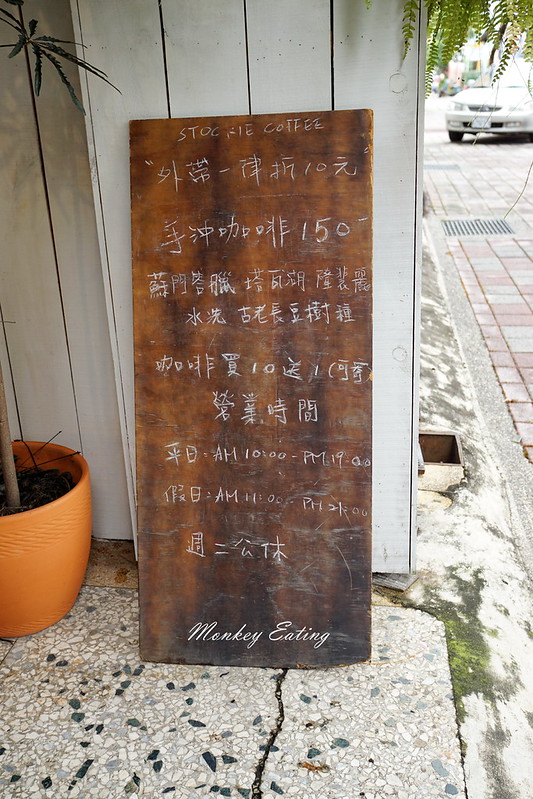 COFFEE
"外帶一律折10元"
手沖咖啡150-
蘇門答臘 塔瓦湖
水洗 古老長豆樹種
咖啡買10送1(可寄)
營業時間
平日:AM 10:00-PM.19:00
假日:AM 11:00-PM 21:00
週二公休
Monkey Eating